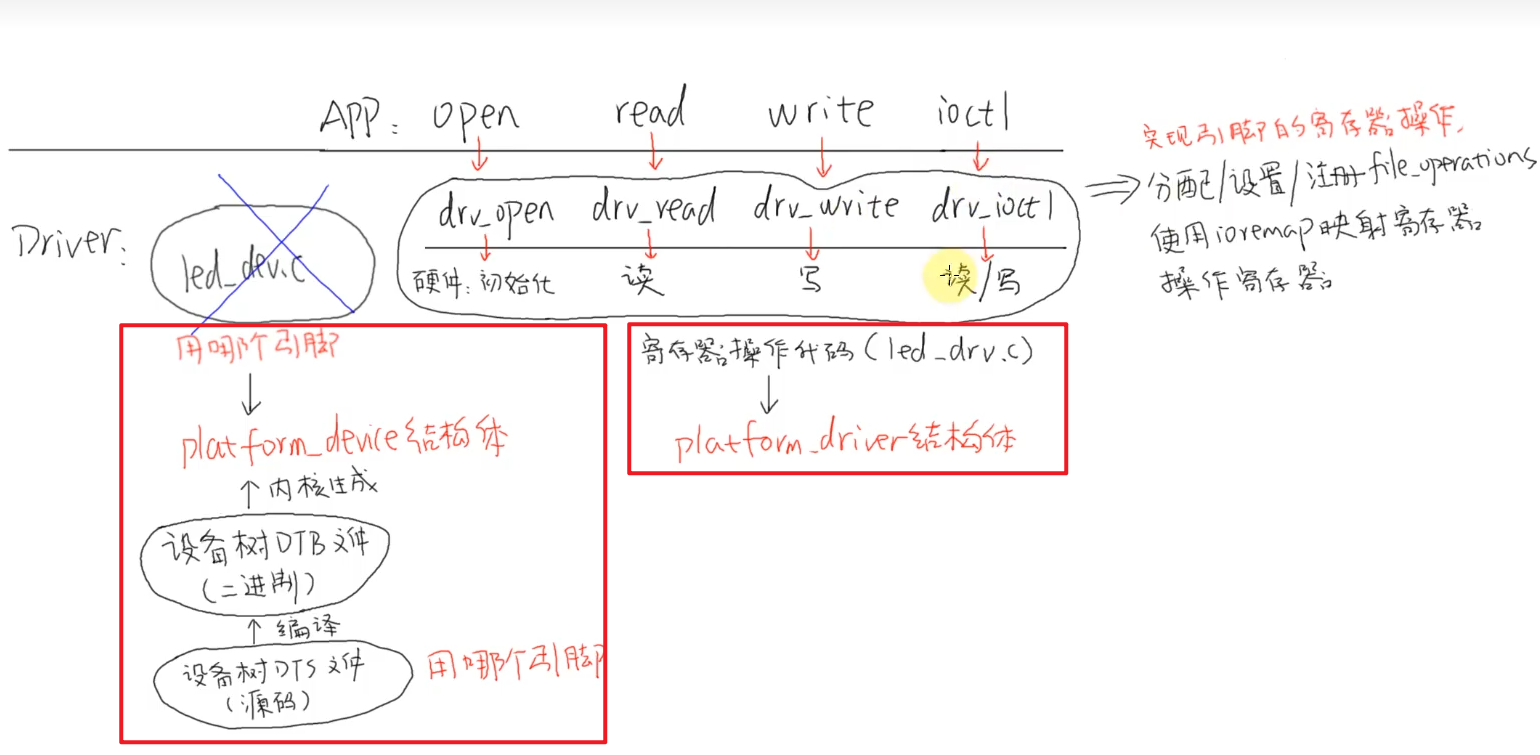 APP: open read write ioctl
实现引脚的寄存器操作,
分配/设置/注册file_operations
使用ioremap映射寄存器
操作寄存器
Driver:
led_dev.c
drv_open drv_read drv_write drv_ioctl
硬件: 初始化 读 写 读/写
用哪个引脚
platform_device结构体
内核生成
设备树DTB文件
(二进制)
编译
设备树DTS文件
(源码)
用哪个引脚
寄存器操作代码(led_drv.c)
platform_driver结构体